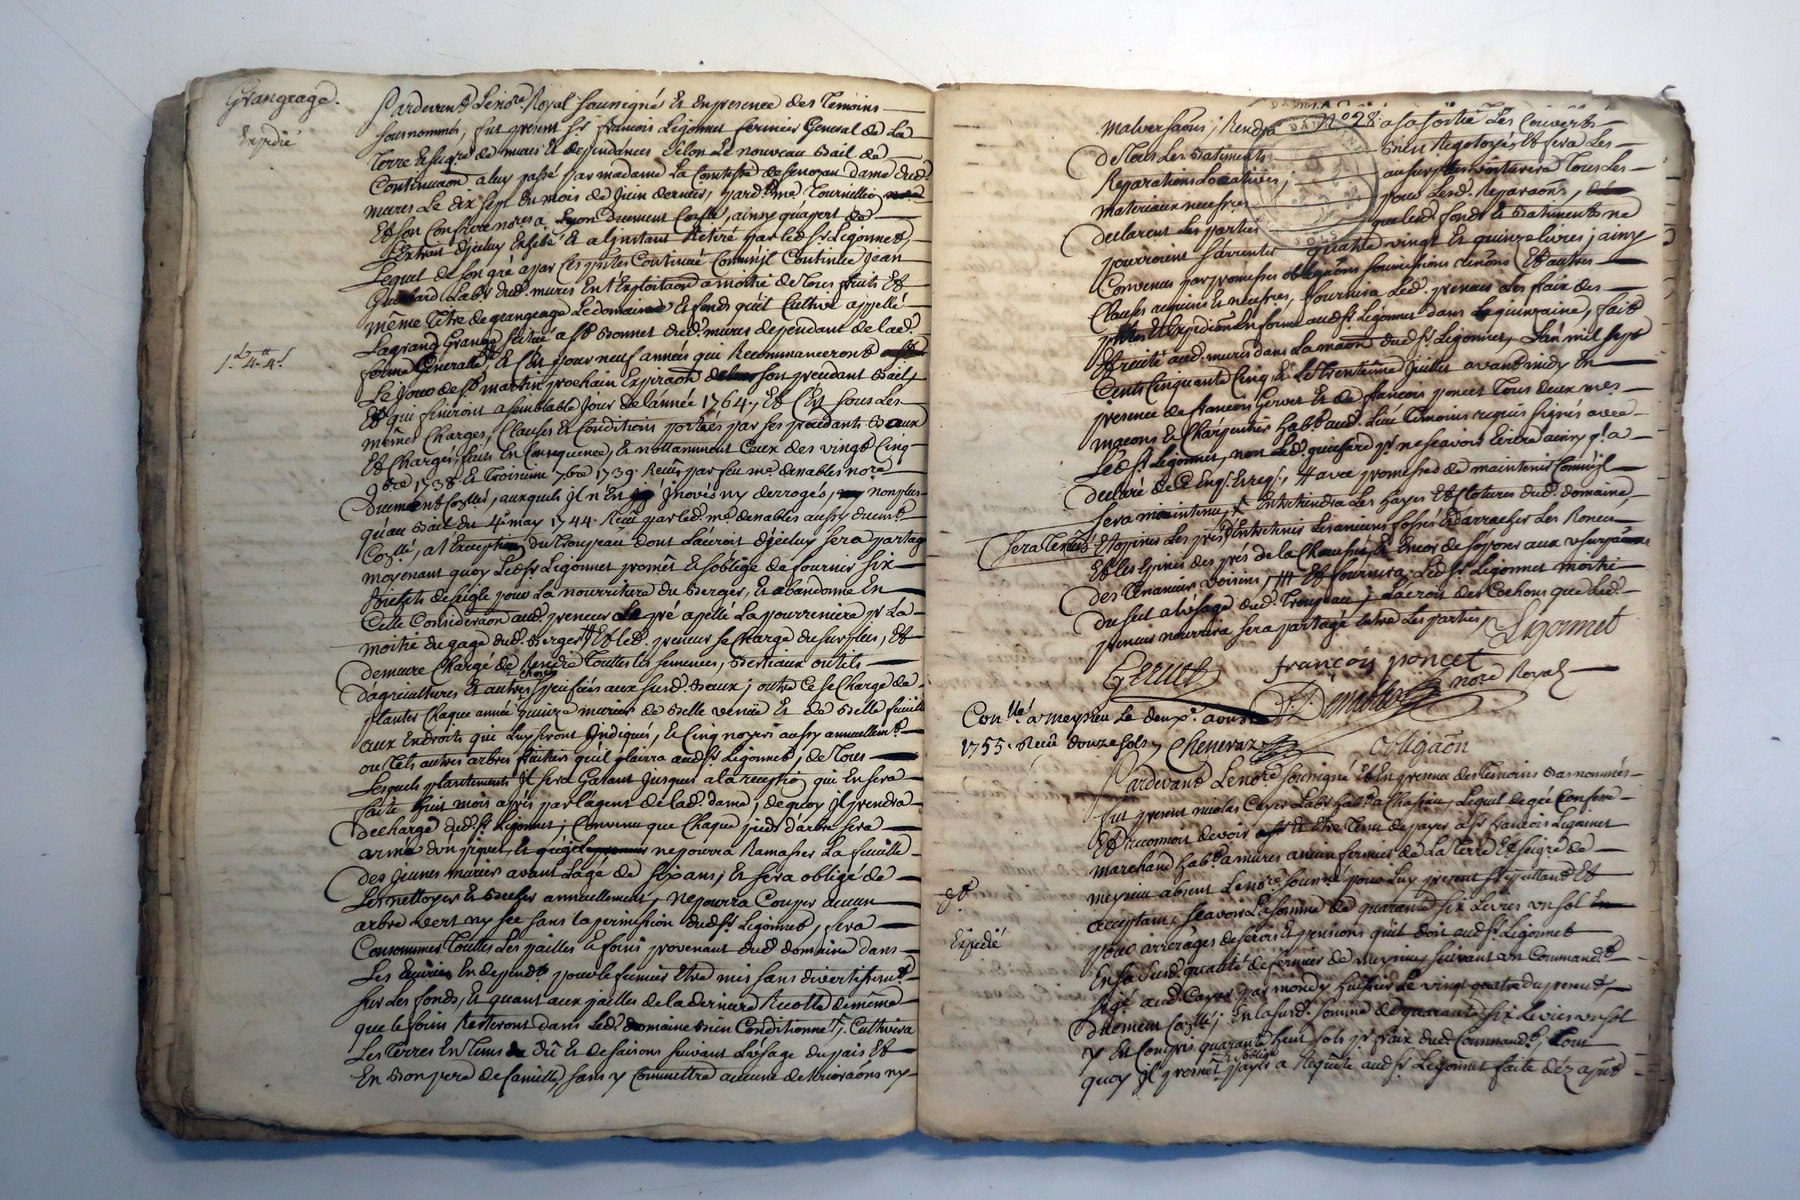 Grangeage.
Expedié
Pardevant Le no.re Royal soussigné Et En presence des Temoins
sousnommés, fut present S.r françois Ligonnet fermier General de La
Terre Et seig.rie de mures Et dependances Selon Le nouveau Bail de
Continuaôn a luy passé par madame La Comtesse de senozan dame dud.
mures Le dix sept du mois de Juin dernier, par d.t me. Tournillon
Et son Confrere no.res a Lyon duement Con.llé, ainsy qu'apert de
L'Extrait d'jceluy Exhibé Et a l'jnstant Retiré par led. S.r Ligonnet,
Lequel de son gré a par ces p.ntes Continué Comm'jl Continue Jean
Guichard Lab.r dud. mures En L'Exploitaôn a moitié de Tous fruits Et
même Titre de grangeage Le domaine Et fonds qu'il Cultive appellé
La grand Grange situé a S.t Bonnet dud. mures dependant de lad.
ferme Generalle, Et C'est pour neuf années qui Recommanceront
Le Jour de S.t martin prochain Expiraôn de son precedant Bail,
Et qui finiront a semblable Jour de L'année 1764., Et C'est sous Les
mêmes Charges, Clauses Et Conditions portées par ses precedants Baux
Et Charges, faits En Consequence, Et nottamment Ceux des vingt Cinq
9bre 1738 Et Troisieme 7bre 1739. Recûs par feu me. denables no.re
Duement Con.llés, auxquels jl n'Est jnnovés ny derrogés, non plus
qu'au Bail du 4.e may 1744. Recû par led. me. denables aussy duem.t
Con.llé, a l'Exception du Troupeau dont L'acroit d'jceluy sera partagé
moyenant quoy Led. S.r Ligonnet promêt Et s'oblige de fournir six
Bichets de seigle pour La nourriture du Berger, Et abandonne En
Cette Consideraôn aud. preneur Le pré apellé La pourreniere p.r La
moitié du gage dud. Berger Et led. preneur se Charge du surplus, Et
demeure Chargé de Rendre Toutes Les semences, Bestiaux outils
d'agricultures Et autres choses specifiées aux susd. Baux; outre Ce se Charge de
planter Chaque année quinze muriers de Belle venüe Et de Belle feuille
aux Endroits qui Luy seront Jndiqués, Et Cinq noyers aussy annuellem.t
ou Tels autres arbres fruitiers qu'il plaira aud. S.r Ligonnet, de Tous
Lesquels plantements jl sera Garant Jusques a la reception qui En sera
faite huit mois après par L'agent de lad. dame, de quoy jl prendra
decharge dud. S.r Ligonnet; Convenu que Chaque pied d'arbre sera
armé d'un piquet, ne pourra Ramasser La feuille
des Jeunes muriers avant L'age de six ans, Et sera obligé de
Les nettoyer Et Becher annuellement, ne poura Couper aucun
arbre vert ny sec sans La permission dud. S.r Ligonnet, fera
Consommer Toutes Les pailles Et foins provenant dud. domaine dans
Les Ecuries En depend.t pour le fumier Etre mis sans divertissem.t
sur Les fonds, Et quant aux pailles de la derniere Recolte de même
que le foin Resteront dans Led. domaine Bien Conditionné, Cultivera
Les Terres En Tems dû Et de saisons suivant L'usage du païs Et
En Bon pere de famille, sans y Commettre aucune deterioraôns ny
malversaôns; Rendra a sa sortie Les Couverts
de Tous Les Batiments Bien Regotoyés Et fera Les
Reparations Locatives; au surplus voiturera Tous Les
materiaux necess.res pour Lesd. Reparaôns,
declarent Les parties que lesd. fonds Et Batiments ne
pourroient s'arrenter quatre vingt Et quinze livres; ainsy
Convenu par promesses obligaôns soumissions renôns Et autres
Clauses requises Et necess.res, fournira Led. preneur a ses frais des
p.ntes Expediôn En forme aud. S.r Ligonnet dans La quinzaine, fait
Et recité aud. mures dans La maôn dud. S.r Ligonnet, L'an mil sept
Cents Cinquante Cinq Et Le Trentieme Juillet avant midy En
presence de françois Gervet Et de françois poncet Tous deux m.es
maçons Et Charpentier hab.t aud. Lieu Temoins requis signés avec
Led. S.r Ligonnet, non Led. guichard p.r ne sçavoir Ecrire ainsy q'l a
declaré de Ce Enq. Et req., # avec promesse de maintenir Comm'jl
sera maintenu, x Entretiendra Les hayes Et Clotures dud. domaine,
sera Tenu
Et les Epines des prés de la Chaussée, Et Encor de s'oposer aux usurpaôns
des Tenanciers voisins, ### Et fournira Led. S.r Ligonnet moitié
du sel a l'usage dud. Troupeau, L'acroit des Cochons que Led.
preneur nourrira sera partagé entre Les parties,
Ligonnet
Gervet françois poncet
Denables no.re Royal
Con.llé a meyzieu Le deux.e aoust
1755. Recû douze sols, Chenevaz
obligaôn
Pardevant Le no.re soussigné Et En presence des Temoins Bas nommés
fut present nicolas Cayer Lab.r hab.t a Chassieu, Lequel de gré Confesse
Et reconnoit devoir Et Etre Tenu de payer a S.r françois Ligonnet
marchand hab.t a mures ancien fermier de La Terre Et seig.rie de
meyzieu absent Le no.re soussigné pour Luy present stipullant Et
d.t
acceptant, sçavoir La somme de quarante six Livres un sol
Expedié
pour arrerages de servis Et pensions qu'il doit aud. S.r Ligonnet
En sa susd. qualité de fermier de meyzieu, suivant un Command.t
fait aud. Cayer par mondy huissier Le vingt quatre du present,
duement Con.llé; En lasusd. somme de quarante six Livres un sol
y Est Compris quarante huit sols p.r frais dud. Command.t, Tout
quoy jl promet Et s'oblige payer a Requête aud. S.r Ligonnet faite dez aprés